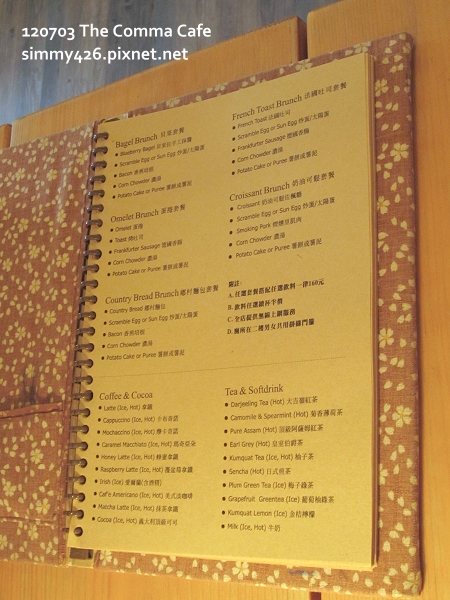 120703 The Comma Cafe
simmy426.pixnet.net
Bagel Brunch 貝果套餐
Blueberry Bagel 藍莓貝果
Scramble Egg or Sun Egg 炒蛋/太陽蛋
Bacon 香煎培根
Corn Chowder 濃湯
Potato Cake or Puree 薯餅或薯泥
Omelet Brunch 蛋捲套餐
Omelet 蛋捲
Toast 烤吐司
Frankfurter Sausage 德國香腸
Corn Chowder 濃湯
Potato Cake or Puree 薯餅或薯泥
Country Bread Brunch 鄉村麵包套餐
Country Bread 鄉村麵包
Scramble Egg or Sun Egg 炒蛋/太陽蛋
Bacon 香煎培根
Corn Chowder 濃湯
Potato Cake or Puree 薯餅或薯泥
French Toast Brunch 法國吐司套餐
French Toast 法國吐司
Scramble Egg or Sun Egg 炒蛋/太陽蛋
Frankfurter Sausage 德國香腸
Corn Chowder 濃湯
Potato Cake or Puree 薯餅或薯泥
Croissant Brunch 奶油可鬆套餐
Croissant 奶油可鬆
Scramble Egg or Sun Egg 炒蛋/太陽蛋
Smoking Pork 煙燻里肌肉
Corn Chowder 濃湯
Potato Cake or Puree 薯餅或薯泥
附註:
A. 任選套餐搭配任選飲料一律160元
B. 飲料任選續杯半價
C. 全店提供無線上網服務
D. 廁所在二樓男女共用
Coffee & Cocoa
Latte (Ice, Hot) 拿鐵
Cappuccino (Ice, Hot) 卡布奇諾
Mochaccino (Ice, Hot) 摩卡奇諾
Caramel Macchiato (Ice, Hot) 瑪奇朵
Honey Latte (Ice, Hot) 蜂蜜拿鐵
Raspberry Latte (Ice, Hot) 覆盆莓拿鐵
Irish (Ice) 愛爾蘭(含酒精)
Caf'e Americano (Ice, Hot) 美式咖啡
Matcha Latte (Ice, Hot) 抹茶拿鐵
Cocoa (Ice, Hot) 義大利頂級可可
Tea & Softdrink
Darjeeling Tea (Hot) 大吉嶺紅茶
Camomile & Spearmint (Hot) 菊香薄荷茶
Pure Assam (Hot) 頂級阿薩姆紅茶
Earl Grey (Hot) 皇室伯爵茶
Kumquat Tea (Ice, Hot) 柚子茶
Sencha (Hot) 日式煎茶
Plum Green Tea (Ice) 梅子綠茶
Grapefruit Greentea (Ice) 葡萄柚綠茶
Kumquat Lemon (Ice) 金桔檸檬
Milk (Ice, Hot) 牛奶